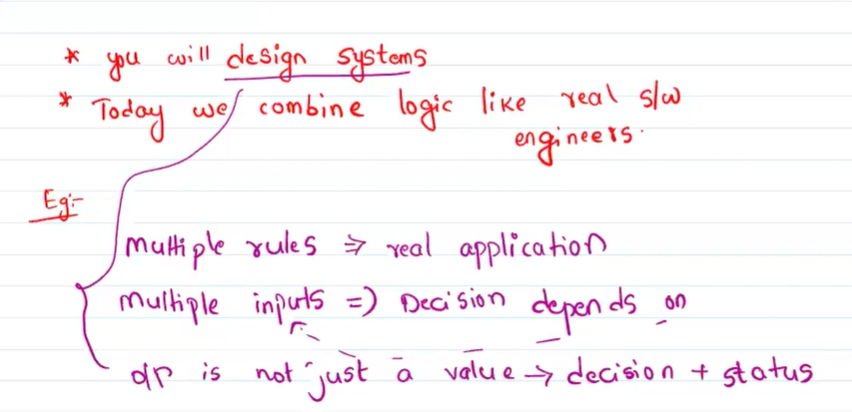 * you will design systems
* Today we combine logic like real s/w
engineers.
Eg:-
multiple rules => real application
multiple inputs => Decision depends on
o/p is not just a value → decision + status